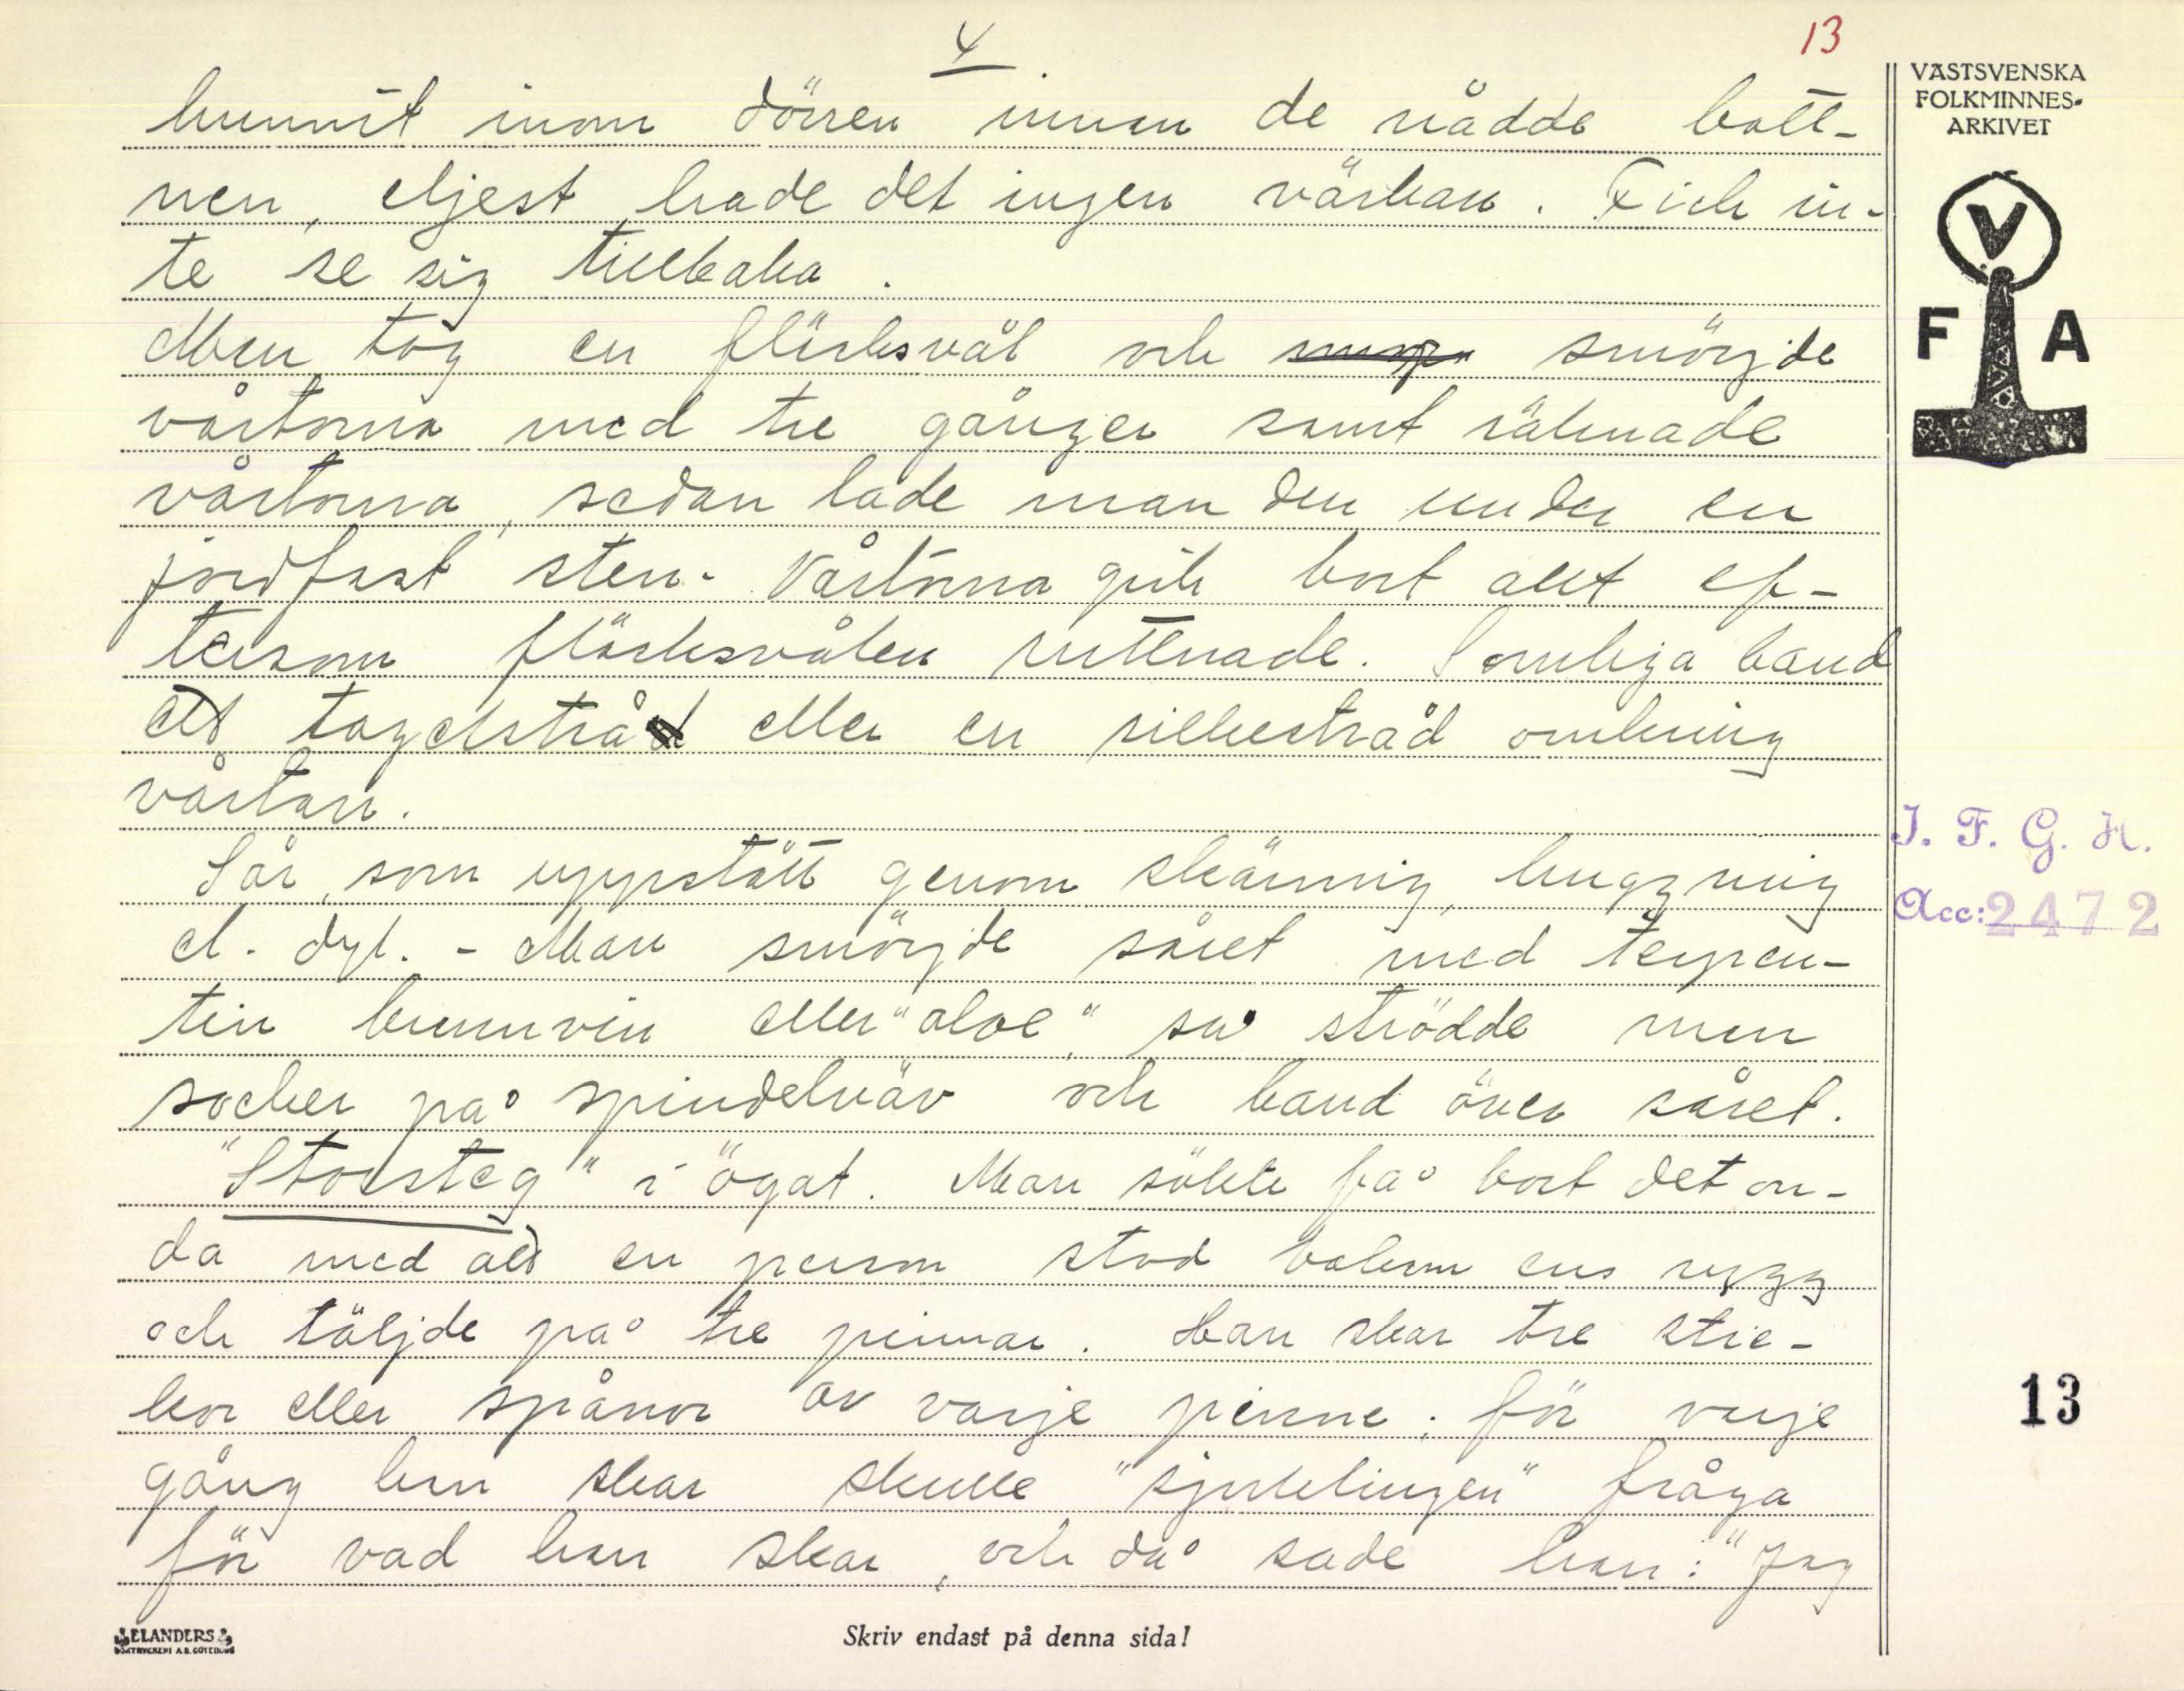 4
13
hunnit inom dörren innan de nådde bott-
nen, eljest hade det ingen värkan. Fick in-
te se sig tillbaka.
Man tog en fläsksvål och smörjde
vårtorna med tre gånger samt räknade
vårtorna, sedan lade man den under en
jordfast sten. Vårtorna gick bort allt ef-
tersom fläsksvålen ruttnade. Somliga band
ett tagelstrå eller en silkestråd omkring
vårtan.
Sår, som uppstått genom skärning, huggning
el. dyl. - Man smörjde såret med terpen-
tin brännvin eller "aloe", så strödde man
socker på spindelväv och band över såret.
"Storsteg" i ögat. Man sökte få bort det on-
da med att en person stod bakom ens rygg
och täljde på tre pinnar. Han skar tre stic-
kor eller spånor av varje pinne; för varje
gång han skar skulle "sjuklingen" fråga
för vad han skar, och då sade han: "Jag
VÄSTSVENSKA
FOLKMINNES-
ARKIVET
V
F A
I. F. G. H.
Acc: 2472
13
ELANDERS
BOKTRYCKERI A.B. GÖTEBORG
Skriv endast på denna sida!